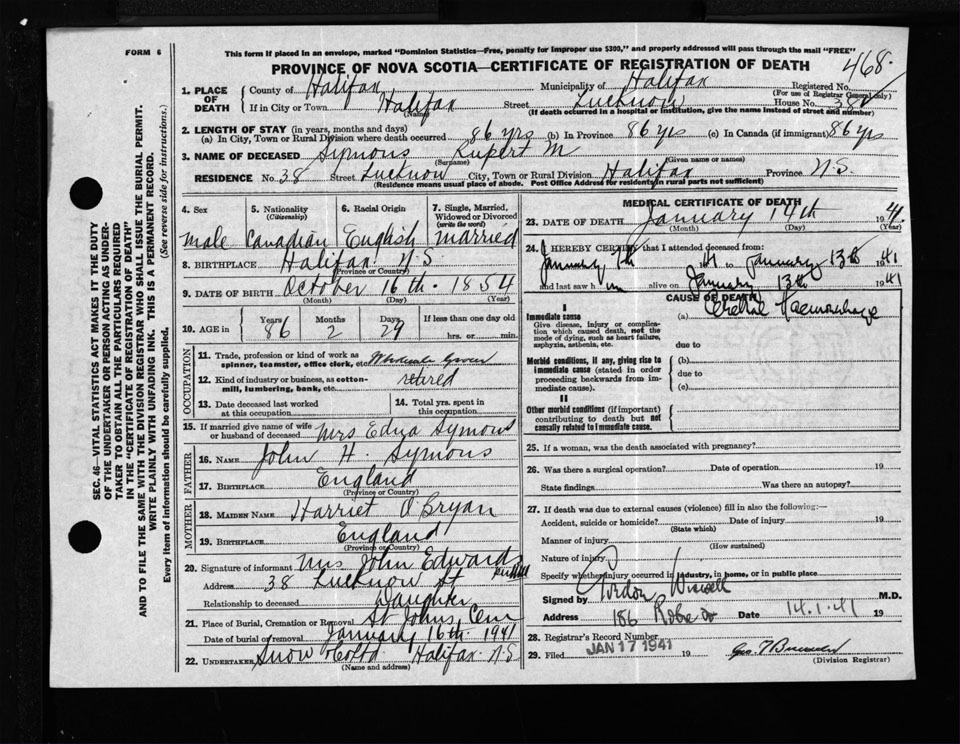 FORM 6
This form if placed in an envelope, marked "Dominion Statistics—Free, penalty for improper use $300," and properly addressed will pass through the mail "FREE"
PROVINCE OF NOVA SCOTIA—CERTIFICATE OF REGISTRATION OF DEATH
468.
1. PLACE OF DEATH
County of Halifax Municipality of Halifax Registered No.
(For use of Registrar General only)
If in City or Town Halifax Street Lucknow House No. 38
(Name) (If death occurred in a hospital or institution, give the name instead of street and number)
2. LENGTH OF STAY (in years, months and days)
(a) In City, Town or Rural Division where death occurred 86 yrs (b) In Province 86 yrs (c) In Canada (if immigrant) 86 yrs
3. NAME OF DECEASED Symons Rupert M
(Surname) (Given name or names)
RESIDENCE No. 38 Street Lucknow City, Town or Rural Division Halifax Province N.S.
(Residence means usual place of abode. Post Office Address for residents in rural parts not sufficient)
4. Sex
male
5. Nationality (Citizenship)
Canadian
6. Racial Origin
English
7. Single, Married, Widowed or Divorced (write the word)
married
8. BIRTHPLACE Halifax N.S.
(Province or Country)
9. DATE OF BIRTH October 16th 1854
(Month) (Day) (Year)
10. AGE in
Years 86
Months 2
Days 29
If less than one day old
hrs. or min.
OCCUPATION
11. Trade, profession or kind of work as spinner, teamster, office clerk, etc.
12. Kind of industry or business, as cotton-mill, lumbering, bank, etc. retired
13. Date deceased last worked at this occupation
14. Total yrs. spent in this occupation
15. If married give name of wife or husband of deceased Mrs Edna Symons
FATHER
16. NAME John H. Symons
17. BIRTHPLACE England
(Province or Country)
MOTHER
18. MAIDEN NAME Harriet O'Bryan
19. BIRTHPLACE England
(Province or Country)
20. Signature of informant Mrs John Edward
Address 38 Lucknow St
Relationship to deceased Daughter
21. Place of Burial, Cremation or Removal St Johns Cem
Date of burial or removal January 16th 1941
22. UNDERTAKER Snow & Co Ltd Halifax N.S
(Name and address)
MEDICAL CERTIFICATE OF DEATH
23. DATE OF DEATH January 14th 1941
(Month) (Day)
24. I HEREBY CERTIFY that I attended deceased from:
January 7th 41 to January 13th 1941
and last saw him alive on January 13th 1941
CAUSE OF DEATH
I
Immediate cause
Give disease, injury or complication which caused death, not the mode of dying, such as heart failure, asphyxia, asthenia, etc.
(a) Cerebral Haemorrhage
due to
Morbid conditions, if any, giving rise to immediate cause (stated in order proceeding backwards from immediate cause).
(b)
due to
(c)
II
Other morbid conditions (if important) contributing to death but not causally related to immediate cause.
25. If a woman, was the death associated with pregnancy?
26. Was there a surgical operation? Date of operation 19
State findings Was there an autopsy?
27. If death was due to external causes (violence) fill in also the following:—
Accident, suicide or homicide? Date of injury 19
(State which)
Manner of injury
(How sustained)
Nature of injury
Specify whether injury occurred in industry, in home, or in public place
Signed by Gordon Wiswell M.D.
Address 186 Robie St Date 14.1.41 19
28. Registrar's Record Number
29. Filed JAN 17 1941 19
(Division Registrar)
SEC. 46—VITAL STATISTICS ACT MAKES IT THE DUTY
OF THE UNDERTAKER OR PERSON ACTING AS UNDERTAKER TO OBTAIN ALL THE PARTICULARS REQUIRED
IN THE "CERTIFICATE OF REGISTRATION OF DEATH"
AND TO FILE THE SAME WITH THE DIVISION REGISTRAR WHO SHALL ISSUE THE BURIAL PERMIT.
WRITE PLAINLY WITH UNFADING INK. THIS IS A PERMANENT RECORD.
Every item of information should be carefully supplied. (See reverse side for instructions.)